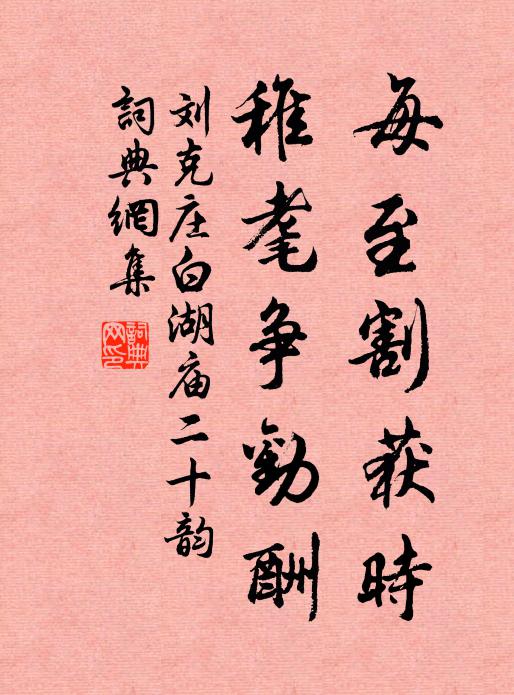 每至割获時
稚耄争勸酬
刘克庄白湖庙二十韵
詞典網集
詞典网印